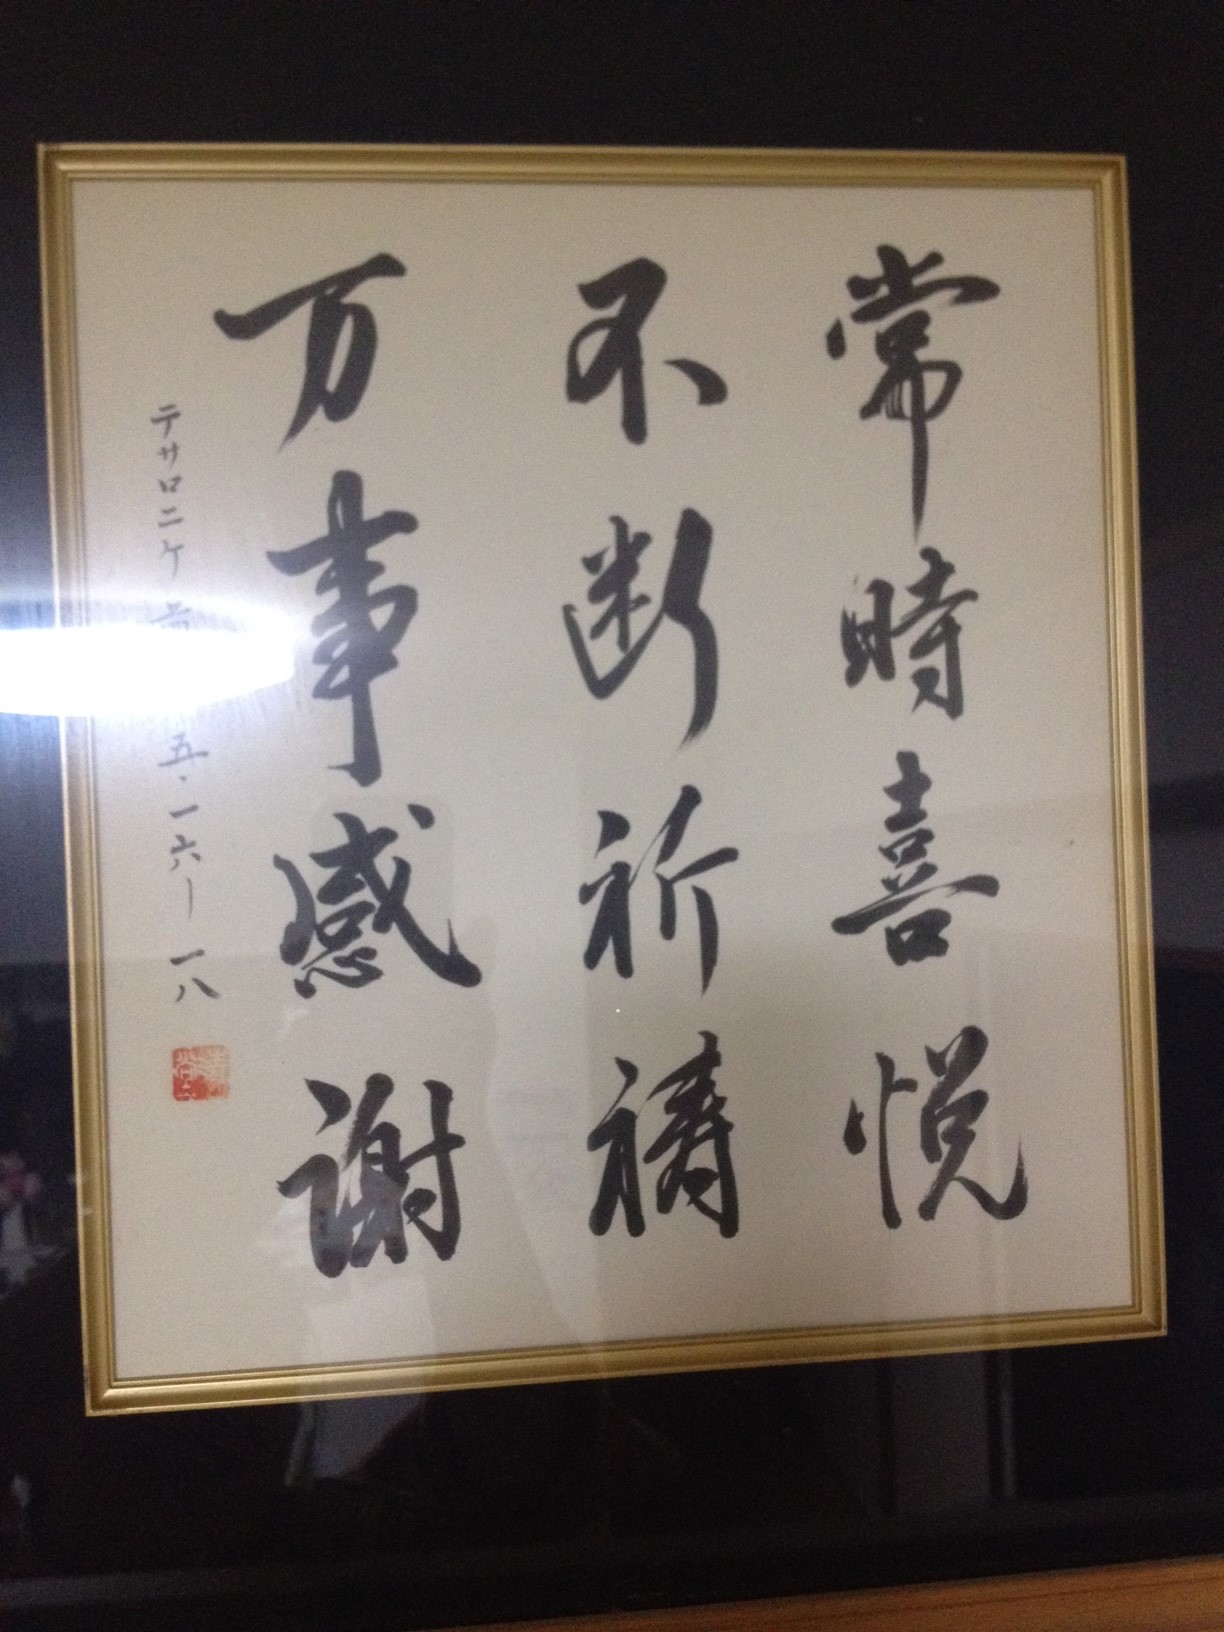 常時喜悦
不断祈祷
万事感謝
テサロニケ前 五・一六ー一八